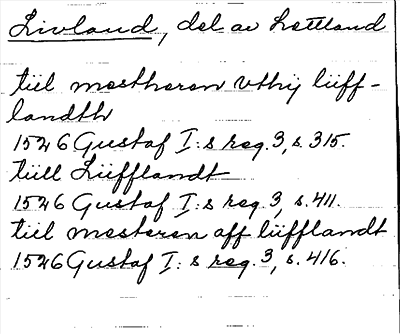 Livland, del av Lettland
tiil mestheren vthÿ liiff-
landth
1526 Gustaf I:s reg. 3, s. 315.
tiill Liifflandt
1526 Gustaf I:s reg. 3 s. 411.
tiil mesteren aff liifflandt
1526 Gustaf I:s reg. 3, s. 416.